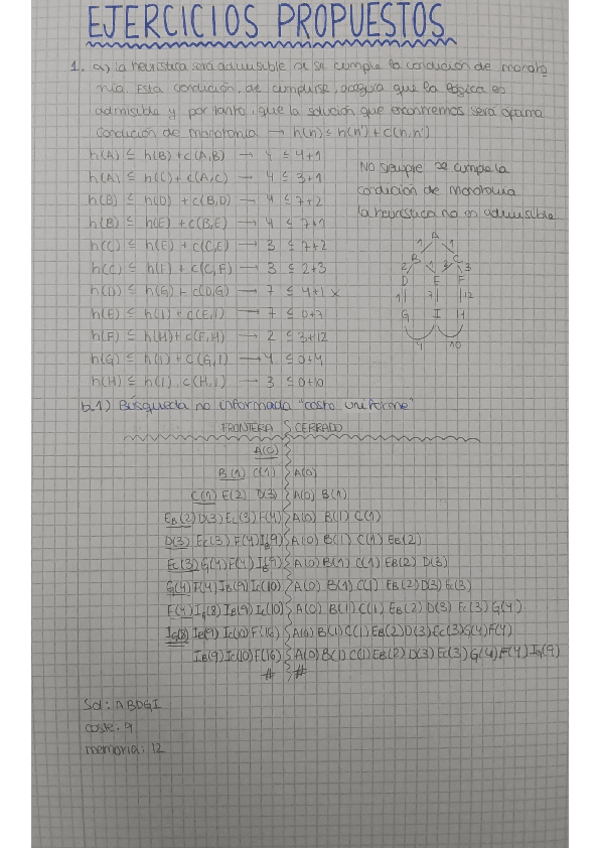 EJERCICIOS PROPUESTOS
1. a) la heurística será admisible si se cumple la condición de monoto
nía. Esta condición, de cumplirse, asegura que la lógica es
admisible y por tanto, que la solución que encontremos será óptima
Condición de monotonía → h(n) ≤ h(n') + c(n,n')
h(A) ≤ h(B) + c(A,B) → 4 ≤ 4+1
h(A) ≤ h(C) + c(A,C) → 4 ≤ 3+1
h(B) ≤ h(D) + c(B,D) → 4 ≤ 7+2
h(B) ≤ h(E) + c(B,E) → 4 ≤ 7+1
h(C) ≤ h(E) + c(C,E) → 3 ≤ 7+2
h(C) ≤ h(F) + c(C,F) → 3 ≤ 2+3
h(D) ≤ h(G) + c(D,G) → 7 ≤ 4+1 x
h(E) ≤ h(I) + c(E,I) → 7 ≤ 0+7
h(F) ≤ h(H) + c(F,H) → 2 ≤ 3+12
h(G) ≤ h(I) + c(G,I) → 4 ≤ 0+4
h(H) ≤ h(I) . c(H,I) → 3 ≤ 0+10
No siempre se cumple la
condición de monotonía
la heurística no es admisible
A
1 1
B C
2 1 2 3
D E F
1 7 12
G I H
4 10
b.1) Búsqueda no informada "costo uniforme"
FRONTERA CERRADO
A(0)
B(1) C(1) A(0)
C(1) E(2) D(3) A(0) B(1)
EB(2) D(3) EC(3) F(4) A(0) B(1) C(1)
D(3) EC(3) F(4) IB(9) A(0) B(1) C(1) EB(2)
EC(3) G(4) F(4) IB(9) A(0) B(1) C(1) EB(2) D(3)
G(4) F(4) IB(9) IC(10) A(0) B(1) C(1) EB(2) D(3) EC(3)
F(4) IG(8) IB(9) IC(10) A(0) B(1) C(1) EB(2) D(3) EC(3) G(4)
IG(8) IB(9) IC(10) F(16) A(0) B(1) C(1) EB(2) D(3) EC(3) G(4) F(4)
IB(9) IC(10) F(16) A(0) B(1) C(1) EB(2) D(3) EC(3) G(4) F(4) IG(9)
# #
Sol: ABDGI
coste: 9
memoria: 12